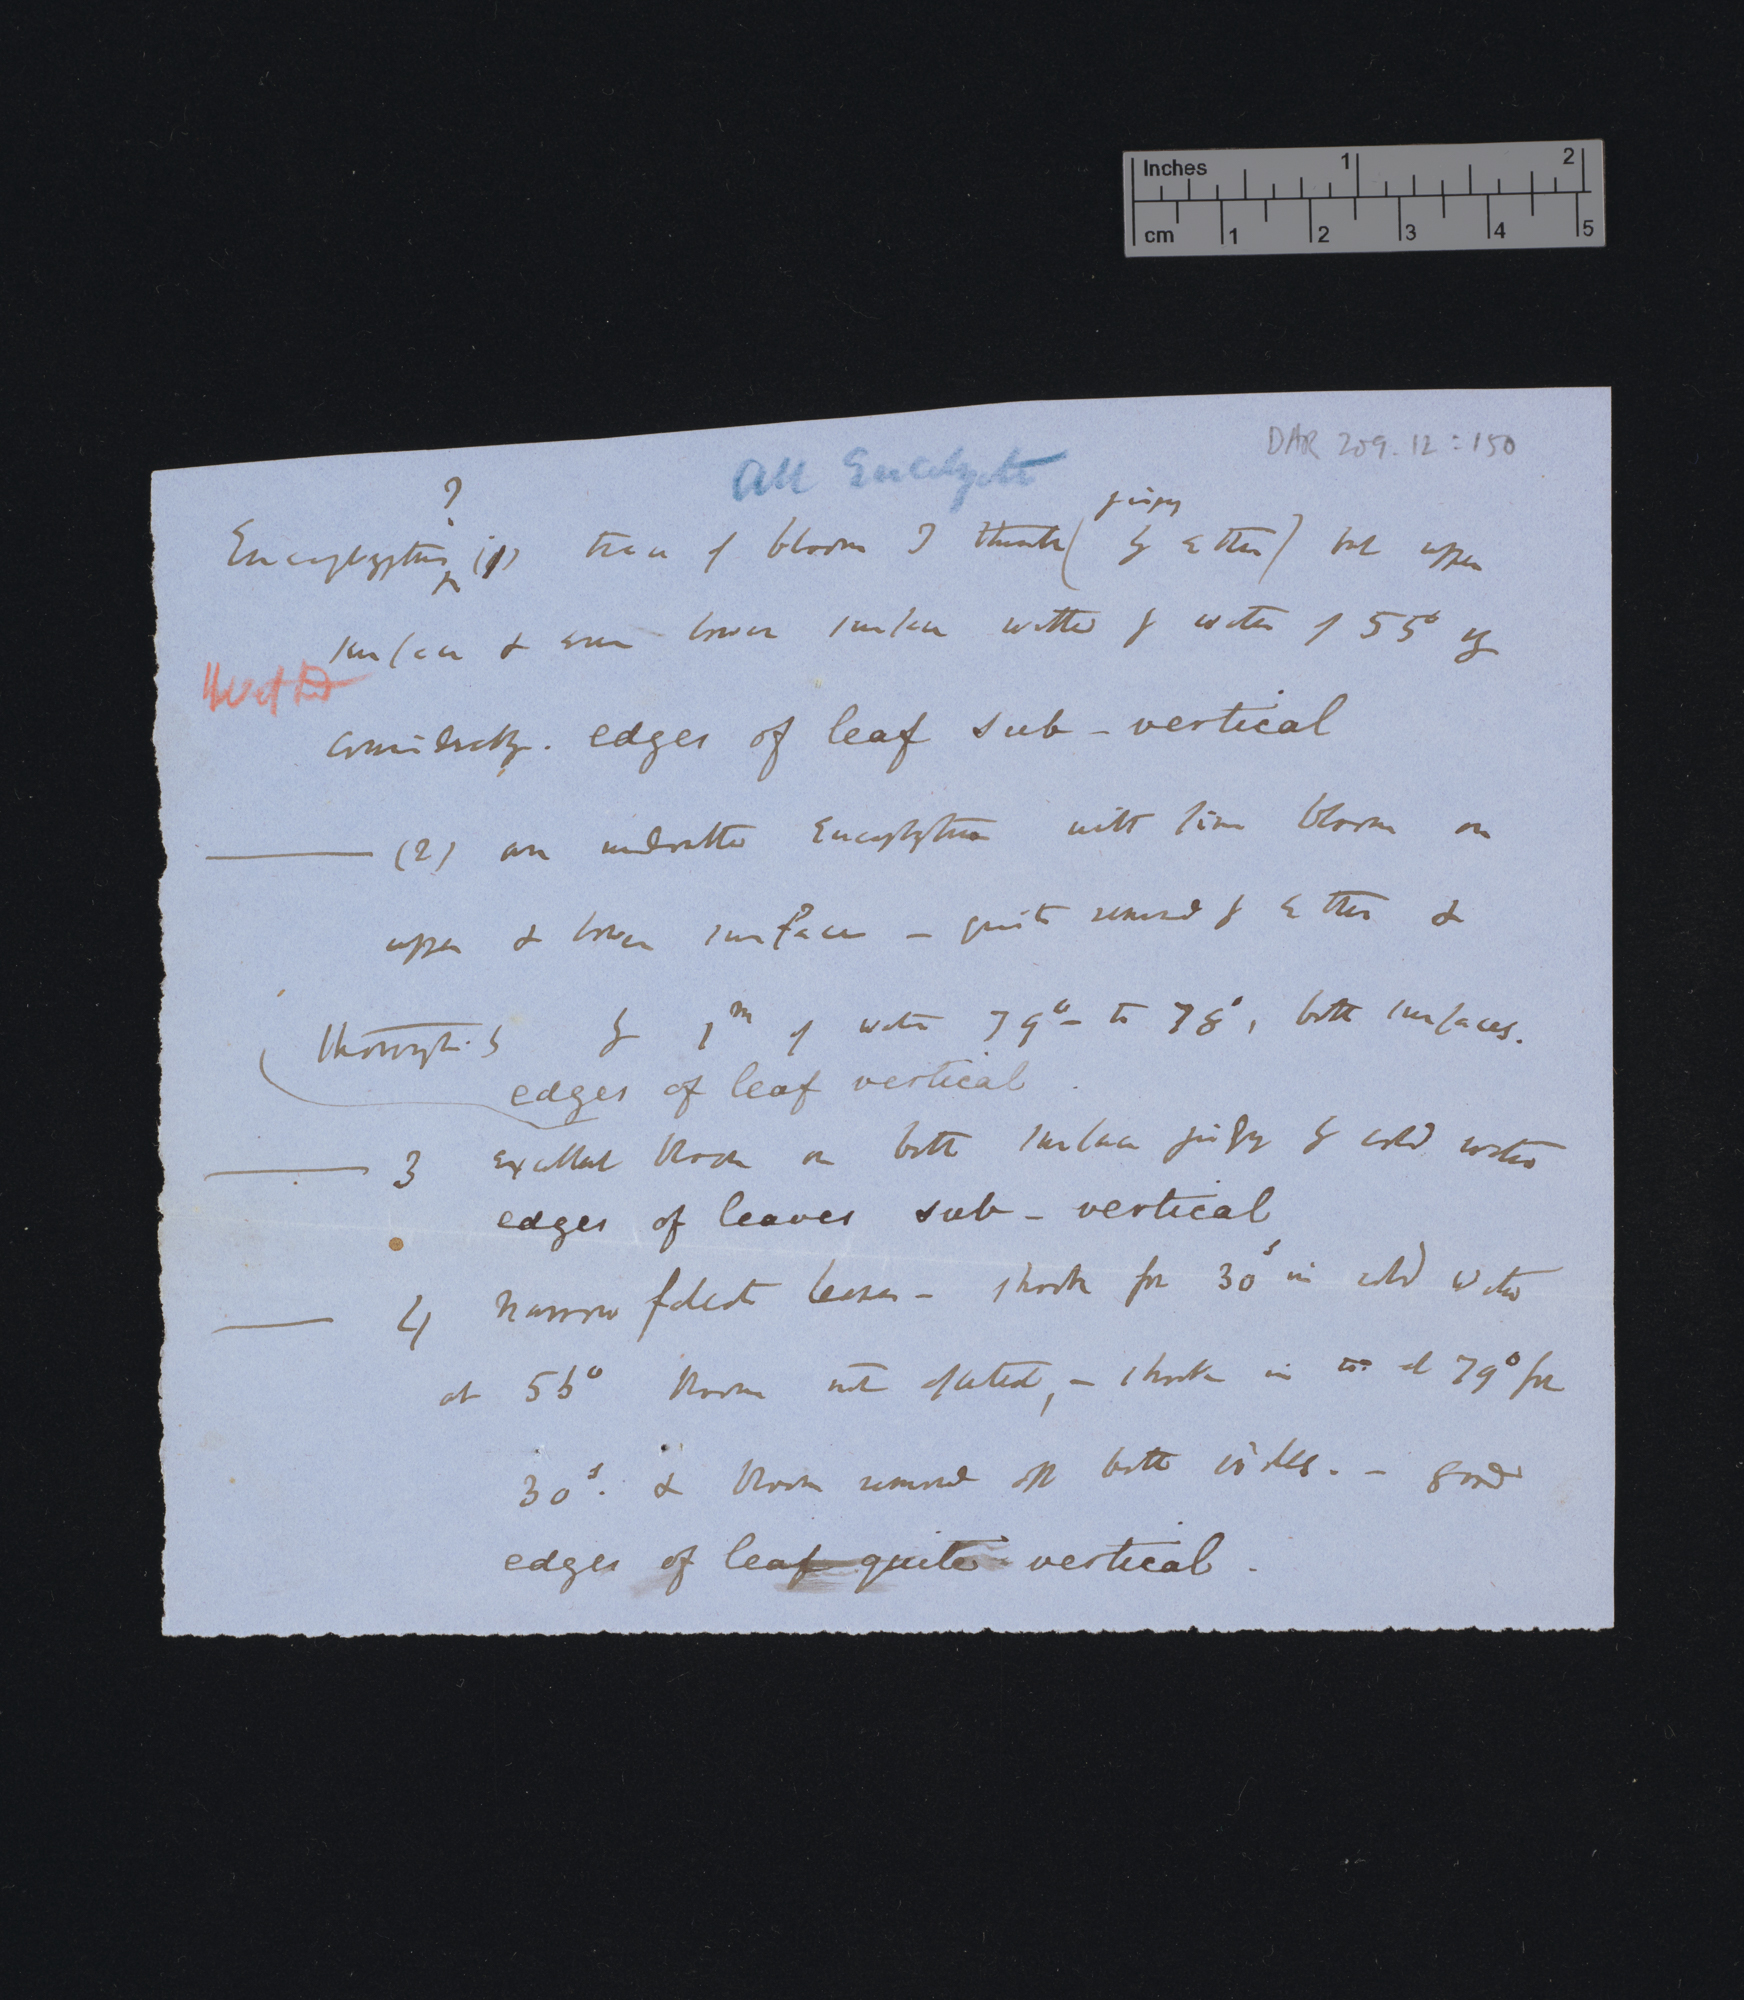 Inches 1 2
cm 1 2 3 4 5
DAR 209.12:150
All Eucalypts
?
Eucalyptus (1) trace of bloom I think ( by ether) but upper
surface & even lower surface wetted by water of 55°
edges of leaf sub-vertical
(2) an Eucalyptus with fine bloom on
upper & lower surface — quite removed by ether &
by 1m of water 79° to 78°, both surfaces.
edges of leaf vertical.
3 excellent bloom on both surfaces by cold water
edges of leaves sub-vertical
4 Narrow leaves — shook for 30s in cold water
at 55° bloom not affected, — shook in at 79° for
30s. & bloom removed off both sides. — good
edges of leaf quite vertical.